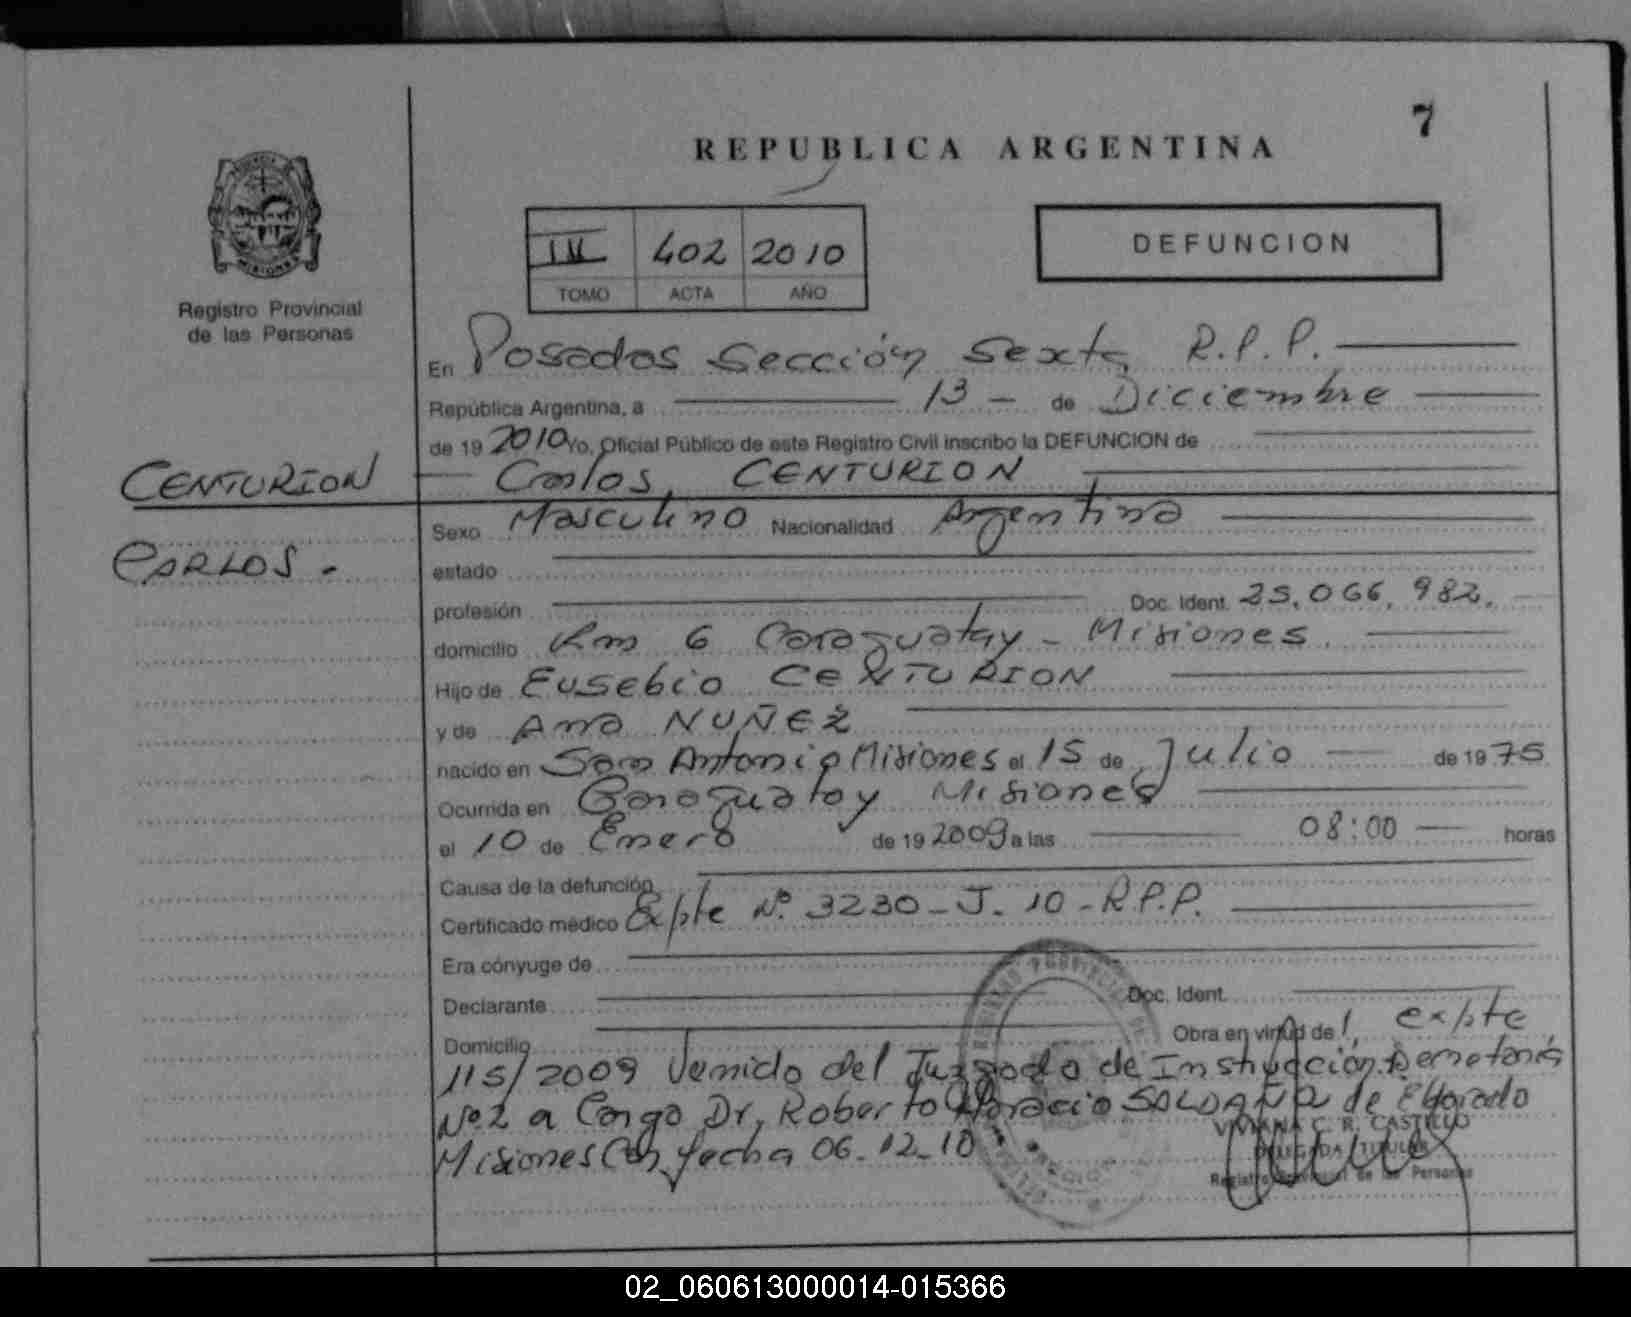 7
REPUBLICA ARGENTINA
MISIONES
Registro Provincial
de las Personas
402 2010
TOMO ACTA AÑO
DEFUNCION
En Posadas Sección Sexta R.P.P.
República Argentina, a 13 - de Diciembre
de 19 2010 Yo, Oficial Público de este Registro Civil inscribo la DEFUNCION de
CENTURION
Carlos, CENTURION
CARLOS.
Sexo Masculino Nacionalidad Argentina
estado
profesión Doc. Ident. 25.066.982.
domicilio Km 6 Caraguatay - Misiones.
Hijo de Eusebio CENTURION
y de Ana NUÑEZ
nacido en San Antonio Misiones el 15 de Julio de 19 75
Ocurrida en Caraguatay Misiones
el 10 de Enero de 19 2009 a las 08:00 horas
Causa de la defunción
Certificado médico Expte Nº 3230-J-10-R.P.P.
Era cónyuge de
Declarante Doc. Ident.
Domicilio Obra en virtud del, expte
115/2009 Venido del Juzgado de Instrucción
Nº2 a Cargo Dr, Roberto Horacio SALDAÑA de Eldorado
Misiones Con fecha 06-12-10
VIVIANA C. R. CASTILLO
DELEGADA TITULAR
Registro Provincial de las Personas
02_060613000014-015366